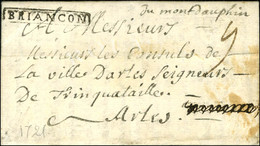 Du mont Dauphin
BRIANCON
A Messieurs
Messieurs les Consuls de
la ville Darles Seigneurs
De Trinquataille
Arles
1721